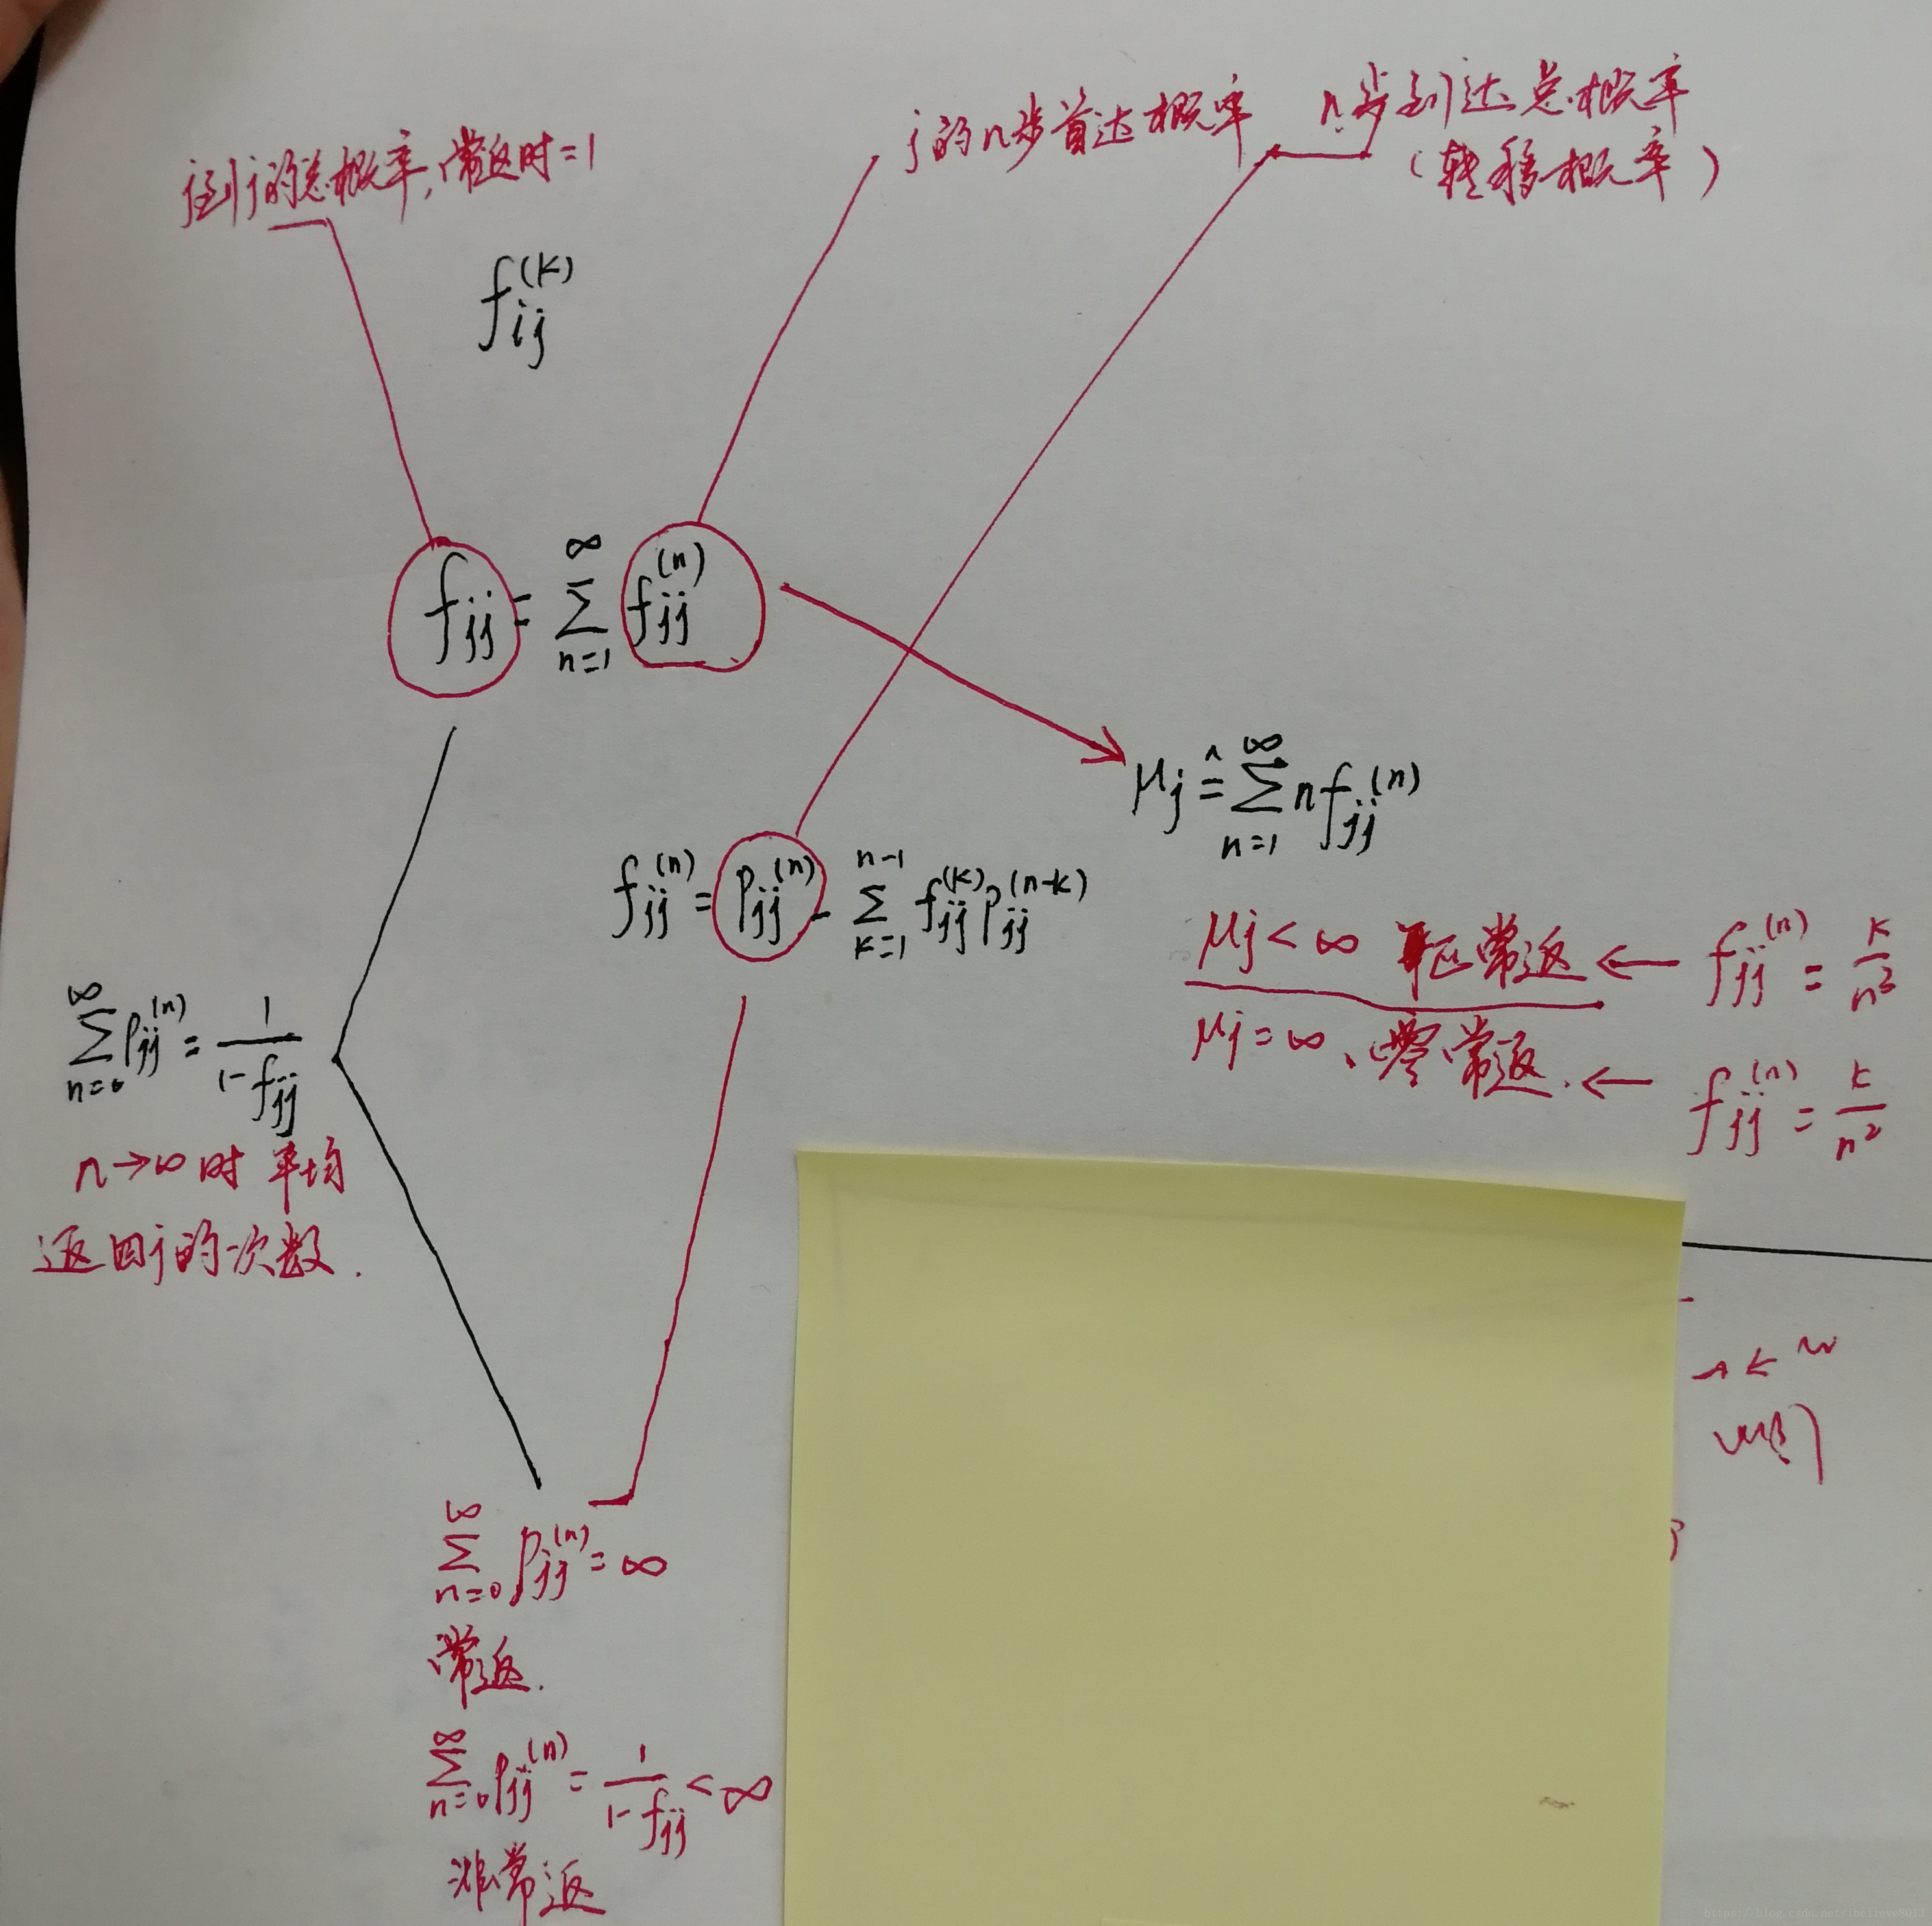 j到j的总概率,常返时=1
j的n步首达概率
n步到达总概率
(转移概率)
f_{ij}^{(k)}
f_{jj} = \sum_{n=1}^{∞} f_{jj}^{(n)}
μ_j ≙ \sum_{n=1}^{∞} n f_{jj}^{(n)}
f_{jj}^{(n)} = p_{jj}^{(n)} - \sum_{k=1}^{n-1} f_{jj}^{(k)} p_{jj}^{(n-k)}
μ_j < ∞ 正常返 ← f_{jj}^{(n)} = \frac{k}{n^3}
μ_j = ∞、零常返. ← f_{jj}^{(n)} = \frac{k}{n^2}
\sum_{n=0}^{∞} p_{jj}^{(n)} = \frac{1}{1-f_{jj}}
n→∞时 平均
返回j的次数.
\sum_{n=0}^{∞} p_{jj}^{(n)} = ∞
常返.
\sum_{n=0}^{∞} p_{jj}^{(n)} = \frac{1}{1-f_{jj}} < ∞
非常返